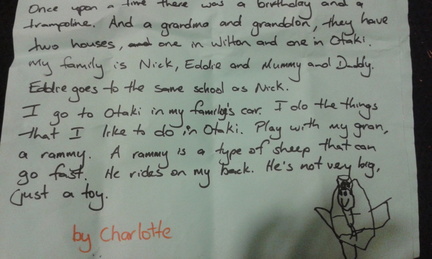 Once upon a time there was a birthday and a
trampoline. And a grandma and granddon, they have
two houses, and one in Wilton and one in Otaki.
My family is Nick, Eddie and Mummy and Daddy.
Eddie goes to the same school as Nick.
I go to Otaki in my family's car. I do the things
that I like to do in Otaki. Play with my gran,
a rammy. A rammy is a type of sheep that can
go fast. He rides on my back. He's not very big,
just a toy.
by Charlotte